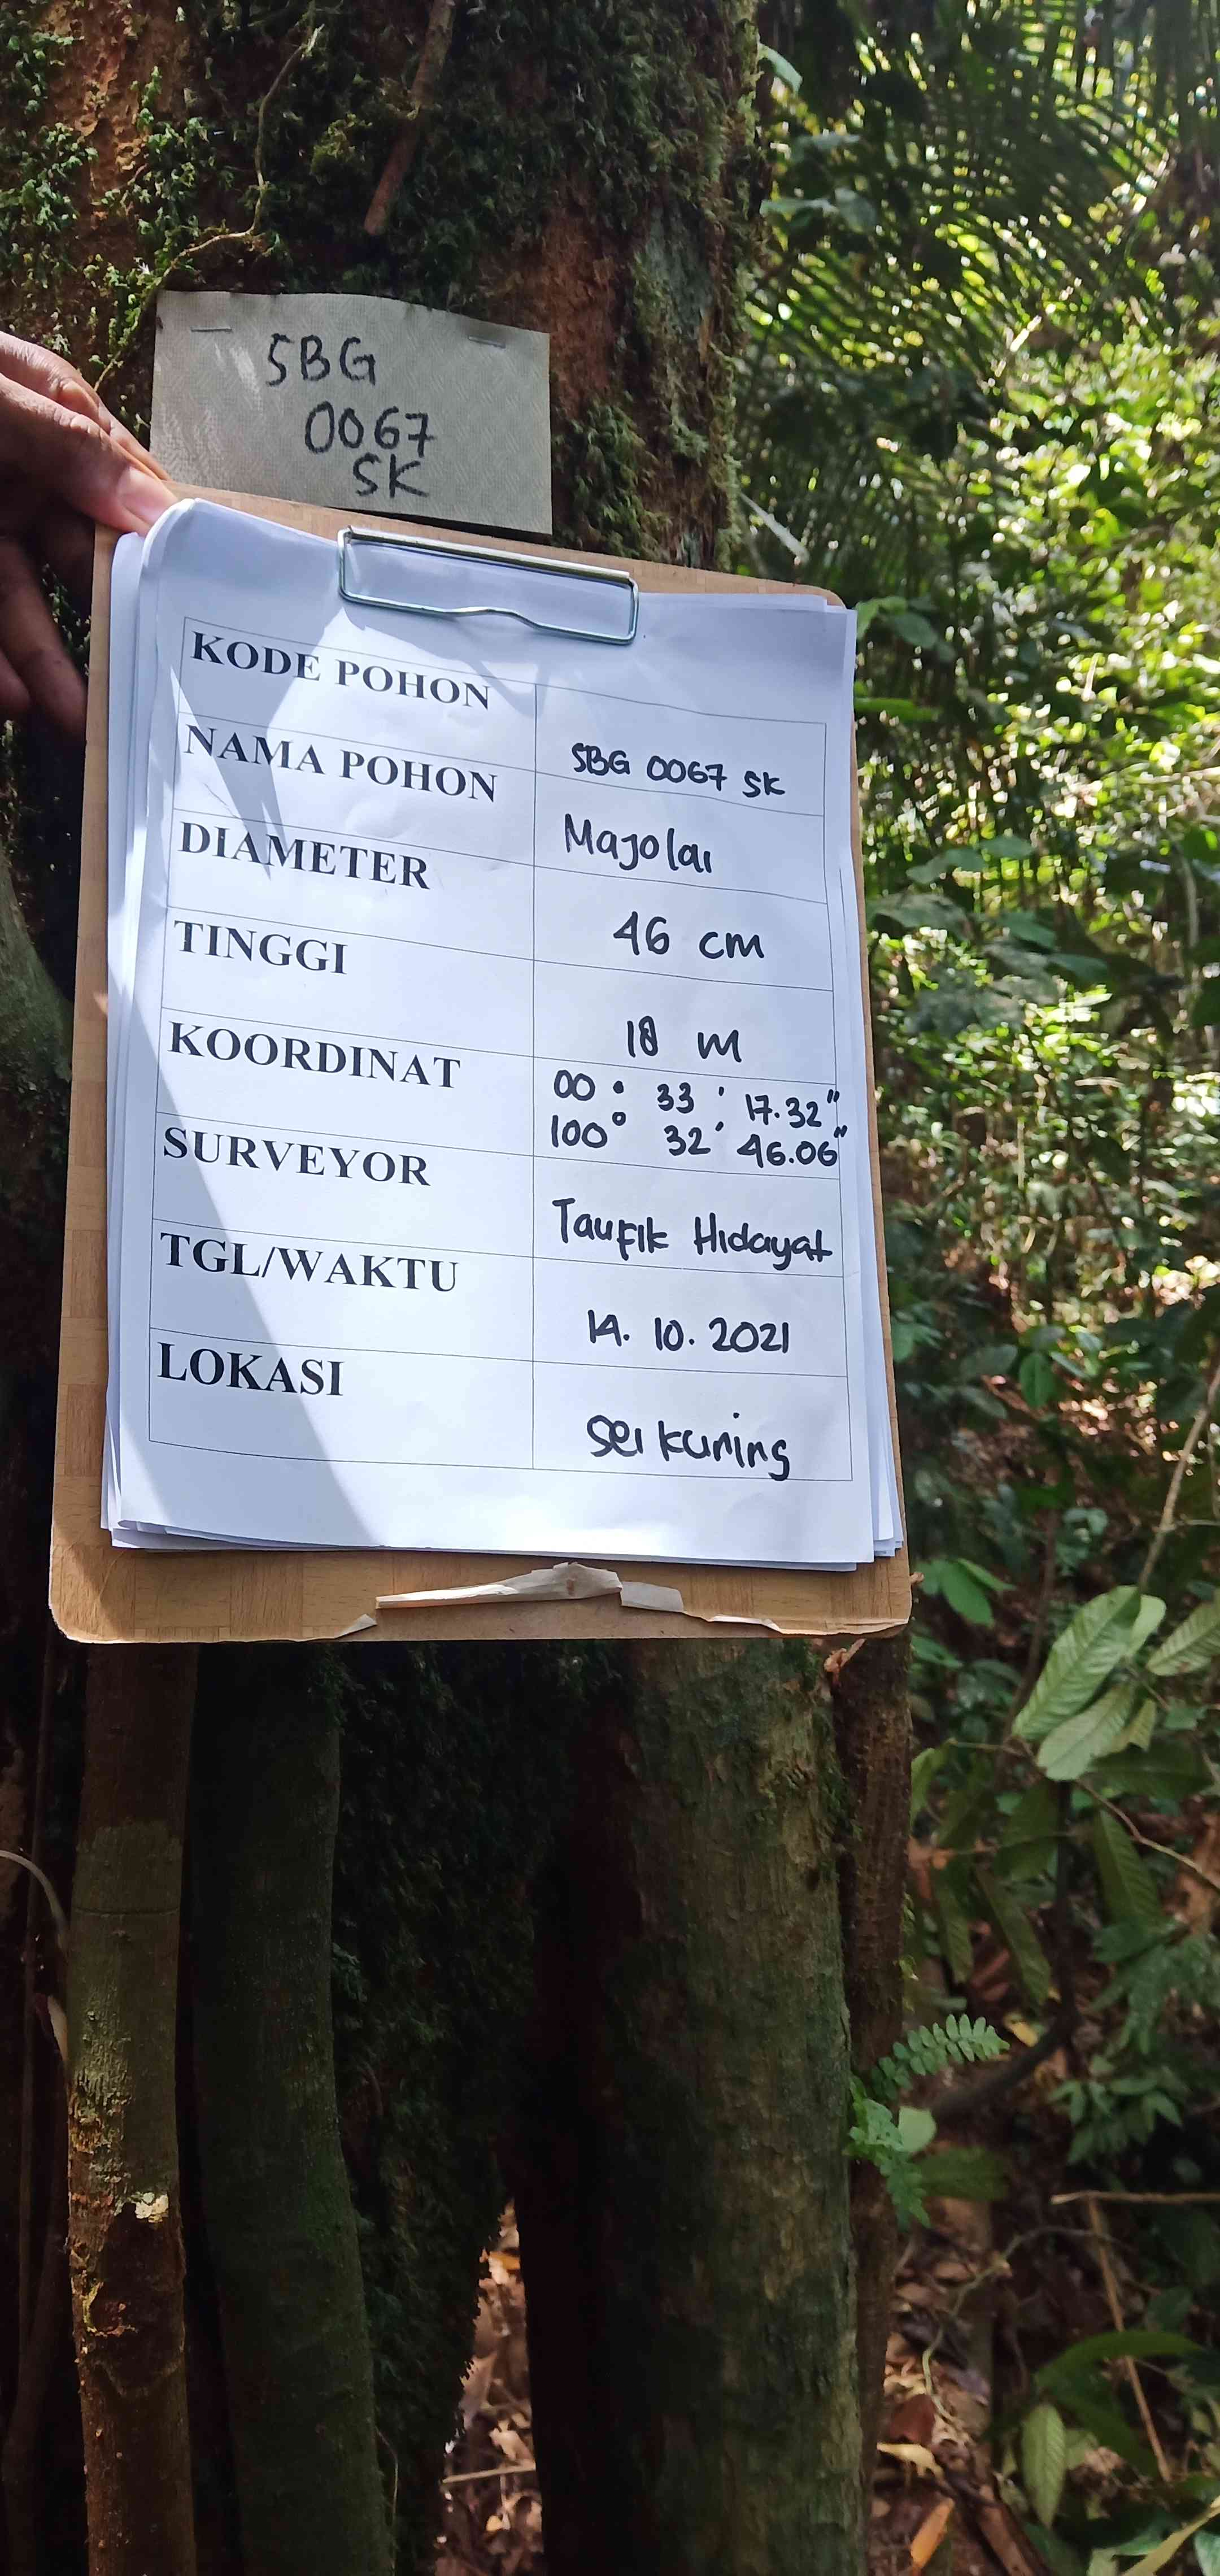 SBG
0067
SK
KODE POHON SBG 0067 SK
NAMA POHON Majolai
DIAMETER 46 cm
TINGGI 18 m
KOORDINAT 00° 33' 17.32"
100° 32' 46.06"
SURVEYOR Taufik Hidayat
TGL/WAKTU 14. 10. 2021
LOKASI Sei kuning